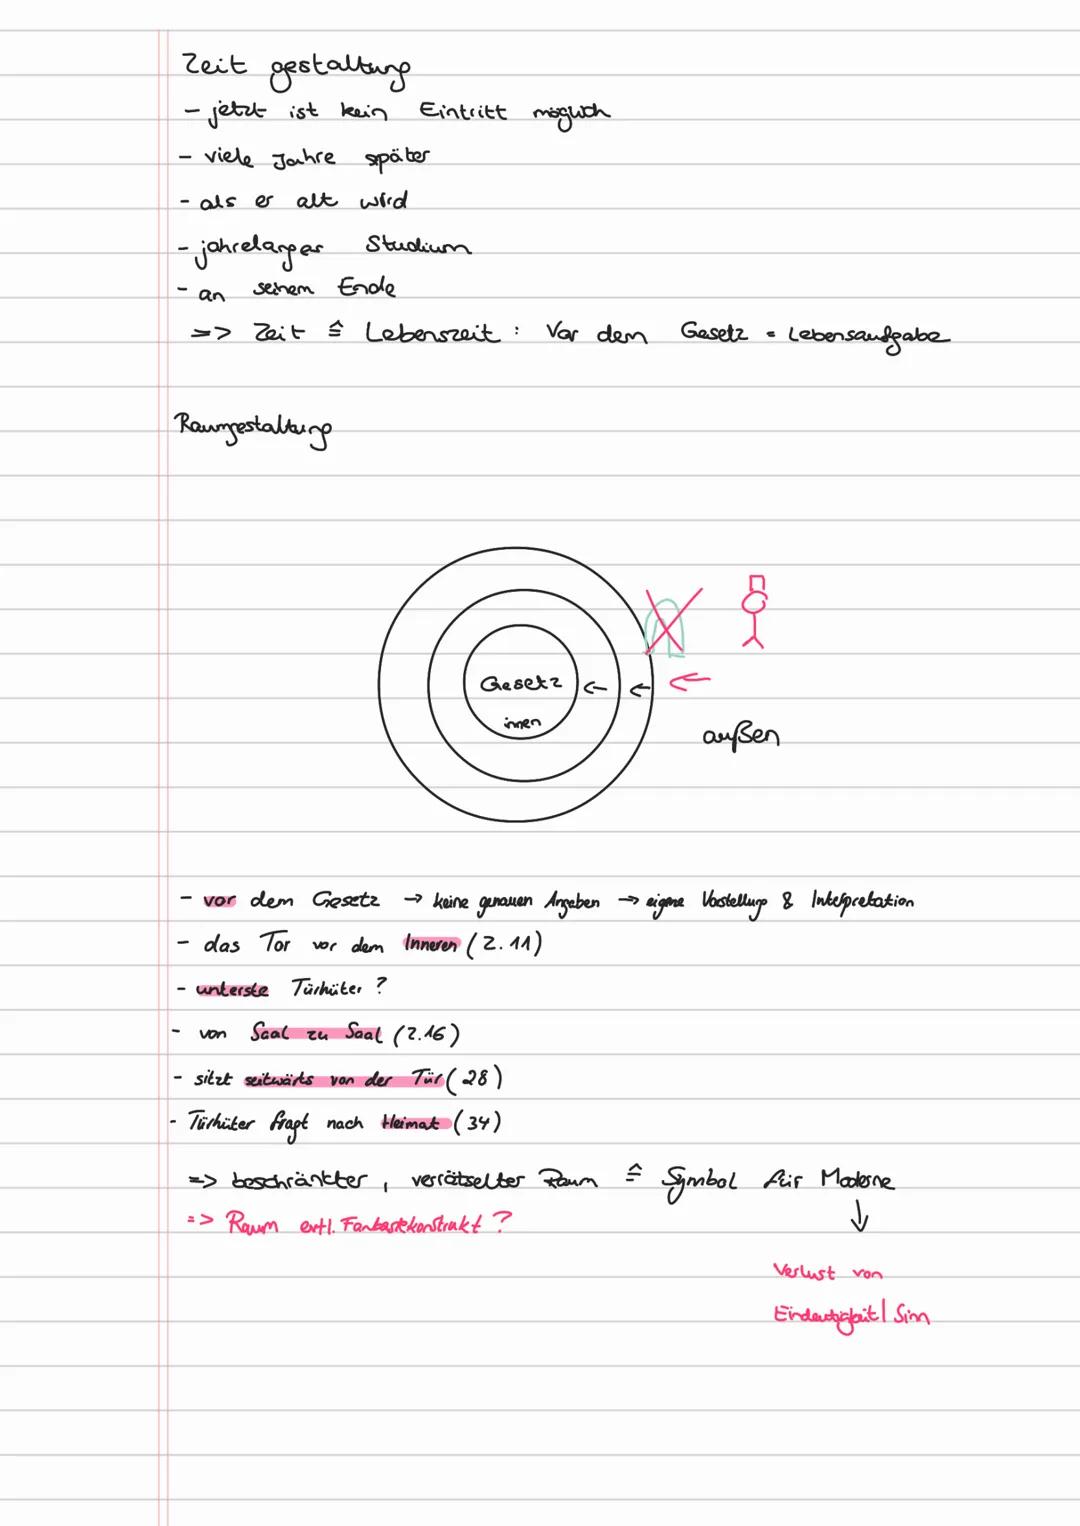 Zeit gestaltung
- jetzt ist kein Eintritt möglich
- viele Jahre später
- als er alt wird
- jahrelanger Studium
- an seinem Ende
=> Zeit ≙ Lebenszeit : Vor dem Gesetz = Lebensaufgabe
Raumgestaltung
Gesetz
innen
außen
- vor dem Gesetz → keine genauen Angaben → eigene Vorstellung & Interpretation
- das Tor vor dem Inneren (Z. 11)
- unterste Türhüter ?
- von Saal zu Saal (Z.16)
- sitzt seitwärts von der Tür (28)
- Türhüter fragt nach Heimat (34)
=> beschränkter, verrätselter Raum ≙ Symbol für Moderne
=> Raum evtl. Fantasiekonstrukt ?
Verlust von
Eindeutigkeit | Sinn